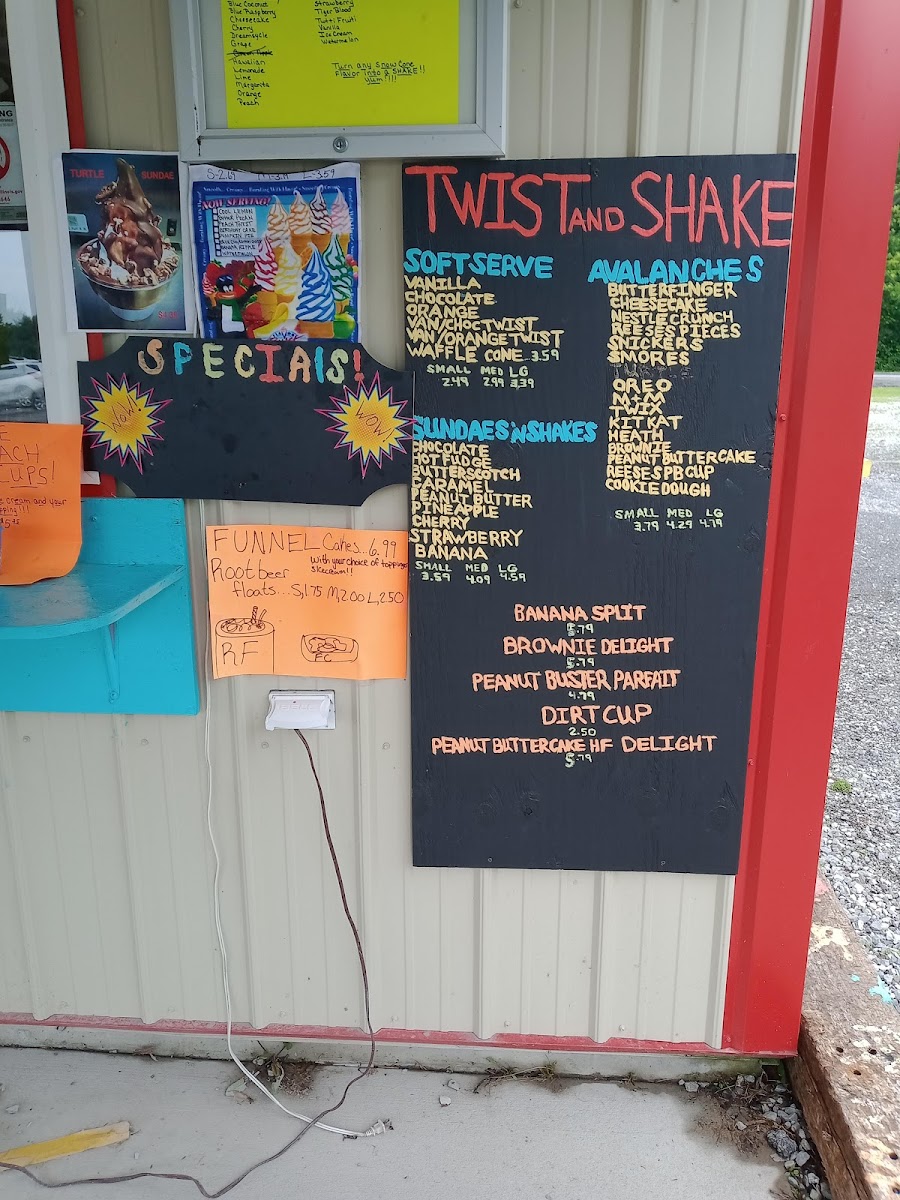 Blue Coconut
Blue Raspberry
Cheesecake
Cherry
Dreamsycle
Grape
Hawaiian
Lemonade
Lime
Margarita
Orange
Peach
Strawberry
Tiger Blood
Tutti Fruiti
Vanilla
Ice Cream
Watermelon
Turn any Snow Cone
Flavor into a SHAKE!!
yum!!!!
TURTLE SUNDAE
S-2.69 L-3.59
NOW SERVING!
COOL LEMON
BIRTHDAY CAKE
PUMPKIN PIE
BANANA RIPPLE
WATERMELON
SPECIALS!
WOW!
WOW!
EACH
CUPS!
ice cream and your
FUNNEL Cakes..6.99
with your choice of topping
&icecream!!
Rootbeer
floats...S,1.75 M,2.00 L,2.50
RF
FC
TWIST AND SHAKE
SOFT SERVE
VANILLA
CHOCOLATE
ORANGE
VAN/CHOC TWIST
VAN/ORANGE TWIST
WAFFLE CONE 3.59
SMALL MED LG
2.49 2.99 3.39
SUNDAES 'N SHAKES
CHOCOLATE
HOT FUDGE
BUTTERSCOTCH
CARAMEL
PEANUT BUTTER
PINEAPPLE
CHERRY
STRAWBERRY
BANANA
SMALL MED LG
3.59 4.09 4.59
AVALANCHES
BUTTERFINGER
CHEESECAKE
NESTLE CRUNCH
REESES PIECES
SNICKERS
SMORES
OREO
M+M
TWIX
KIT KAT
HEATH
BROWNIE
PEANUT BUTTER CAKE
REESES PB CUP
COOKIE DOUGH
SMALL MED LG
3.79 4.29 4.79
BANANA SPLIT
5.79
BROWNIE DELIGHT
5.79
PEANUT BUSTER PARFAIT
4.79
DIRT CUP
2.50
PEANUT BUTTERCAKE HF DELIGHT
5.79